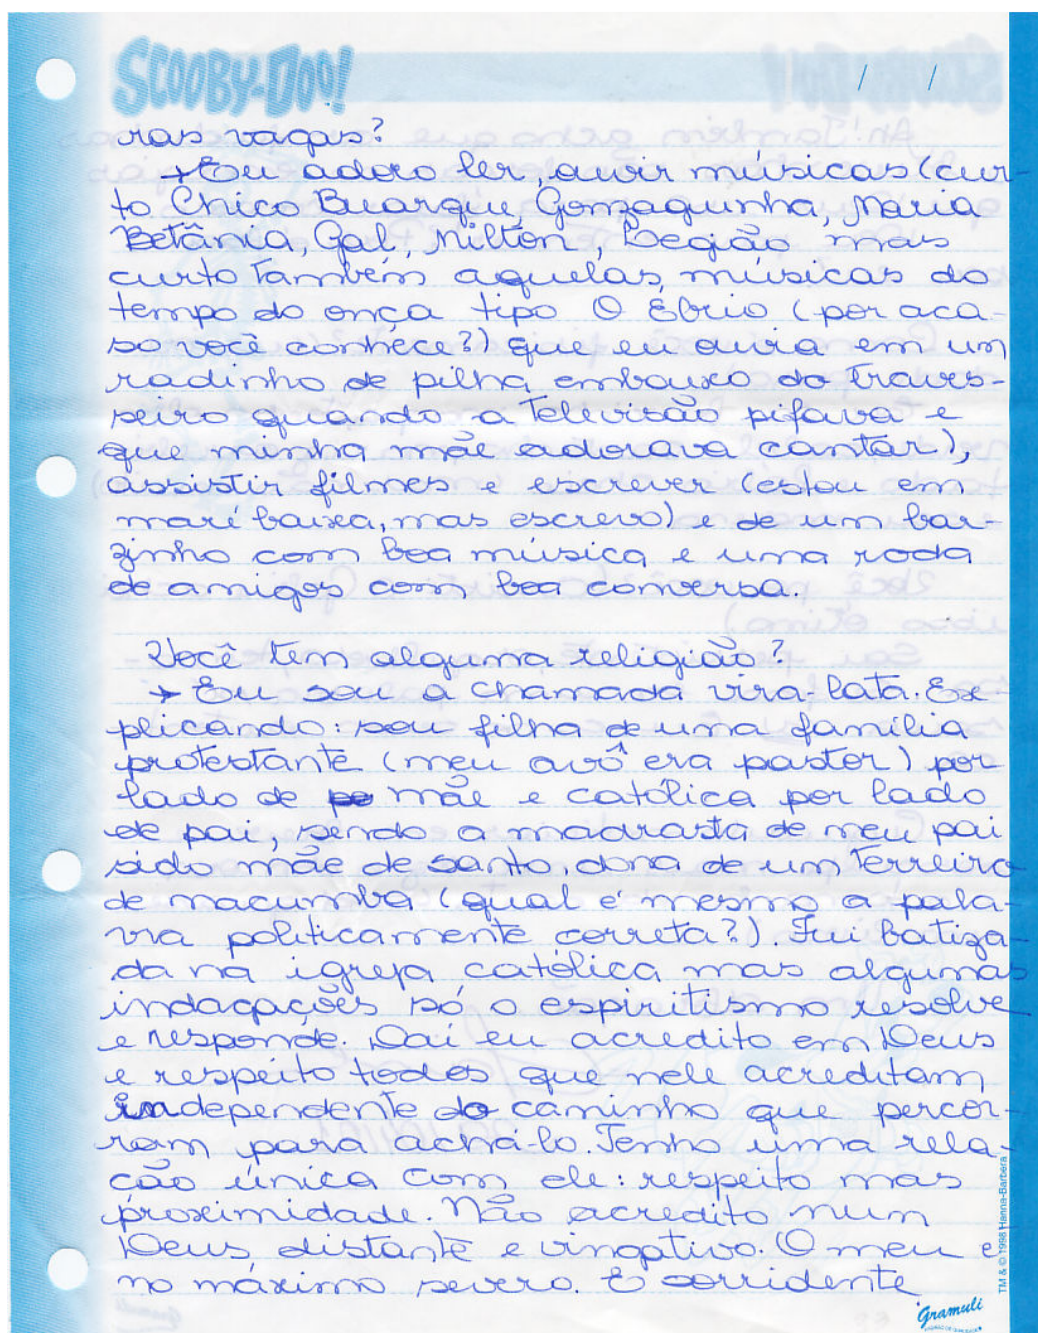 SCOOBY-DOO!
/ /
ras vagas?
→ Eu adoro ler, ouvir músicas (cur-
to Chico Buarque, Gonzaguinha, Maria
Betânia, Gal, Milton, Legião mas
curto também aquelas músicas do
tempo do onça tipo O Ébrio (por aca-
so você conhece?) que eu ouvia em um
radinho de pilha embaixo do traves-
seiro quando a televisão pifava e
que minha mãe adorava cantar),
assistir filmes e escrever (estou em
maré baixa, mas escrevo) e de um bar-
zinho com boa música e uma roda
de amigos com boa conversa.
Você tem alguma religião?
→ Eu sou a chamada vira-lata. Ex-
plicando: sou filha de uma família
protestante (meu avô era pastor) por
lado de mãe e católica por lado
de pai, sendo a madrasta de meu pai
sido mãe de santo, dona de um terreiro
de macumba (qual é mesmo a pala-
vra politicamente correta?). Fui batiza-
da na igreja católica mas algumas
indagações só o espiritismo resolve
e responde. Daí eu acredito em Deus
e respeito todos que nele acreditam
independente do caminho que percor-
ram para achá-lo. Tenho uma rela-
ção única com ele: respeito mas
proximidade. Não acredito num
Deus distante e vingativo. O meu é
no máximo severo. E sorridente
TM & © 1998 Hanna-Barbera
Gramuli